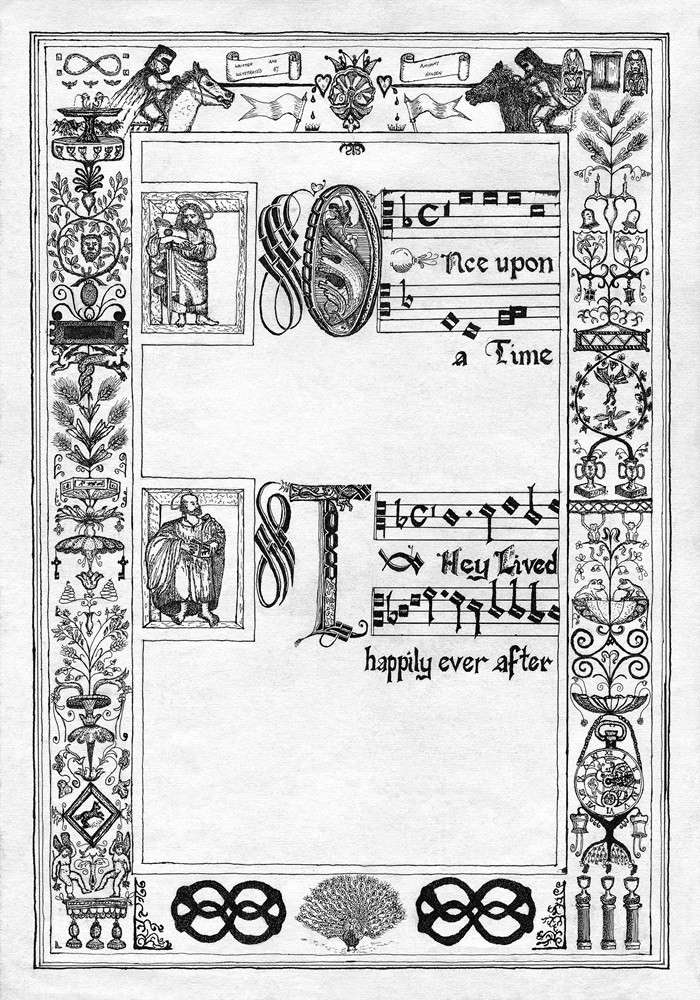 WRITTEN AND
ILLUSTRATED BY
ANTHONY
ONce upon
a Time
THey Lived
happily ever after